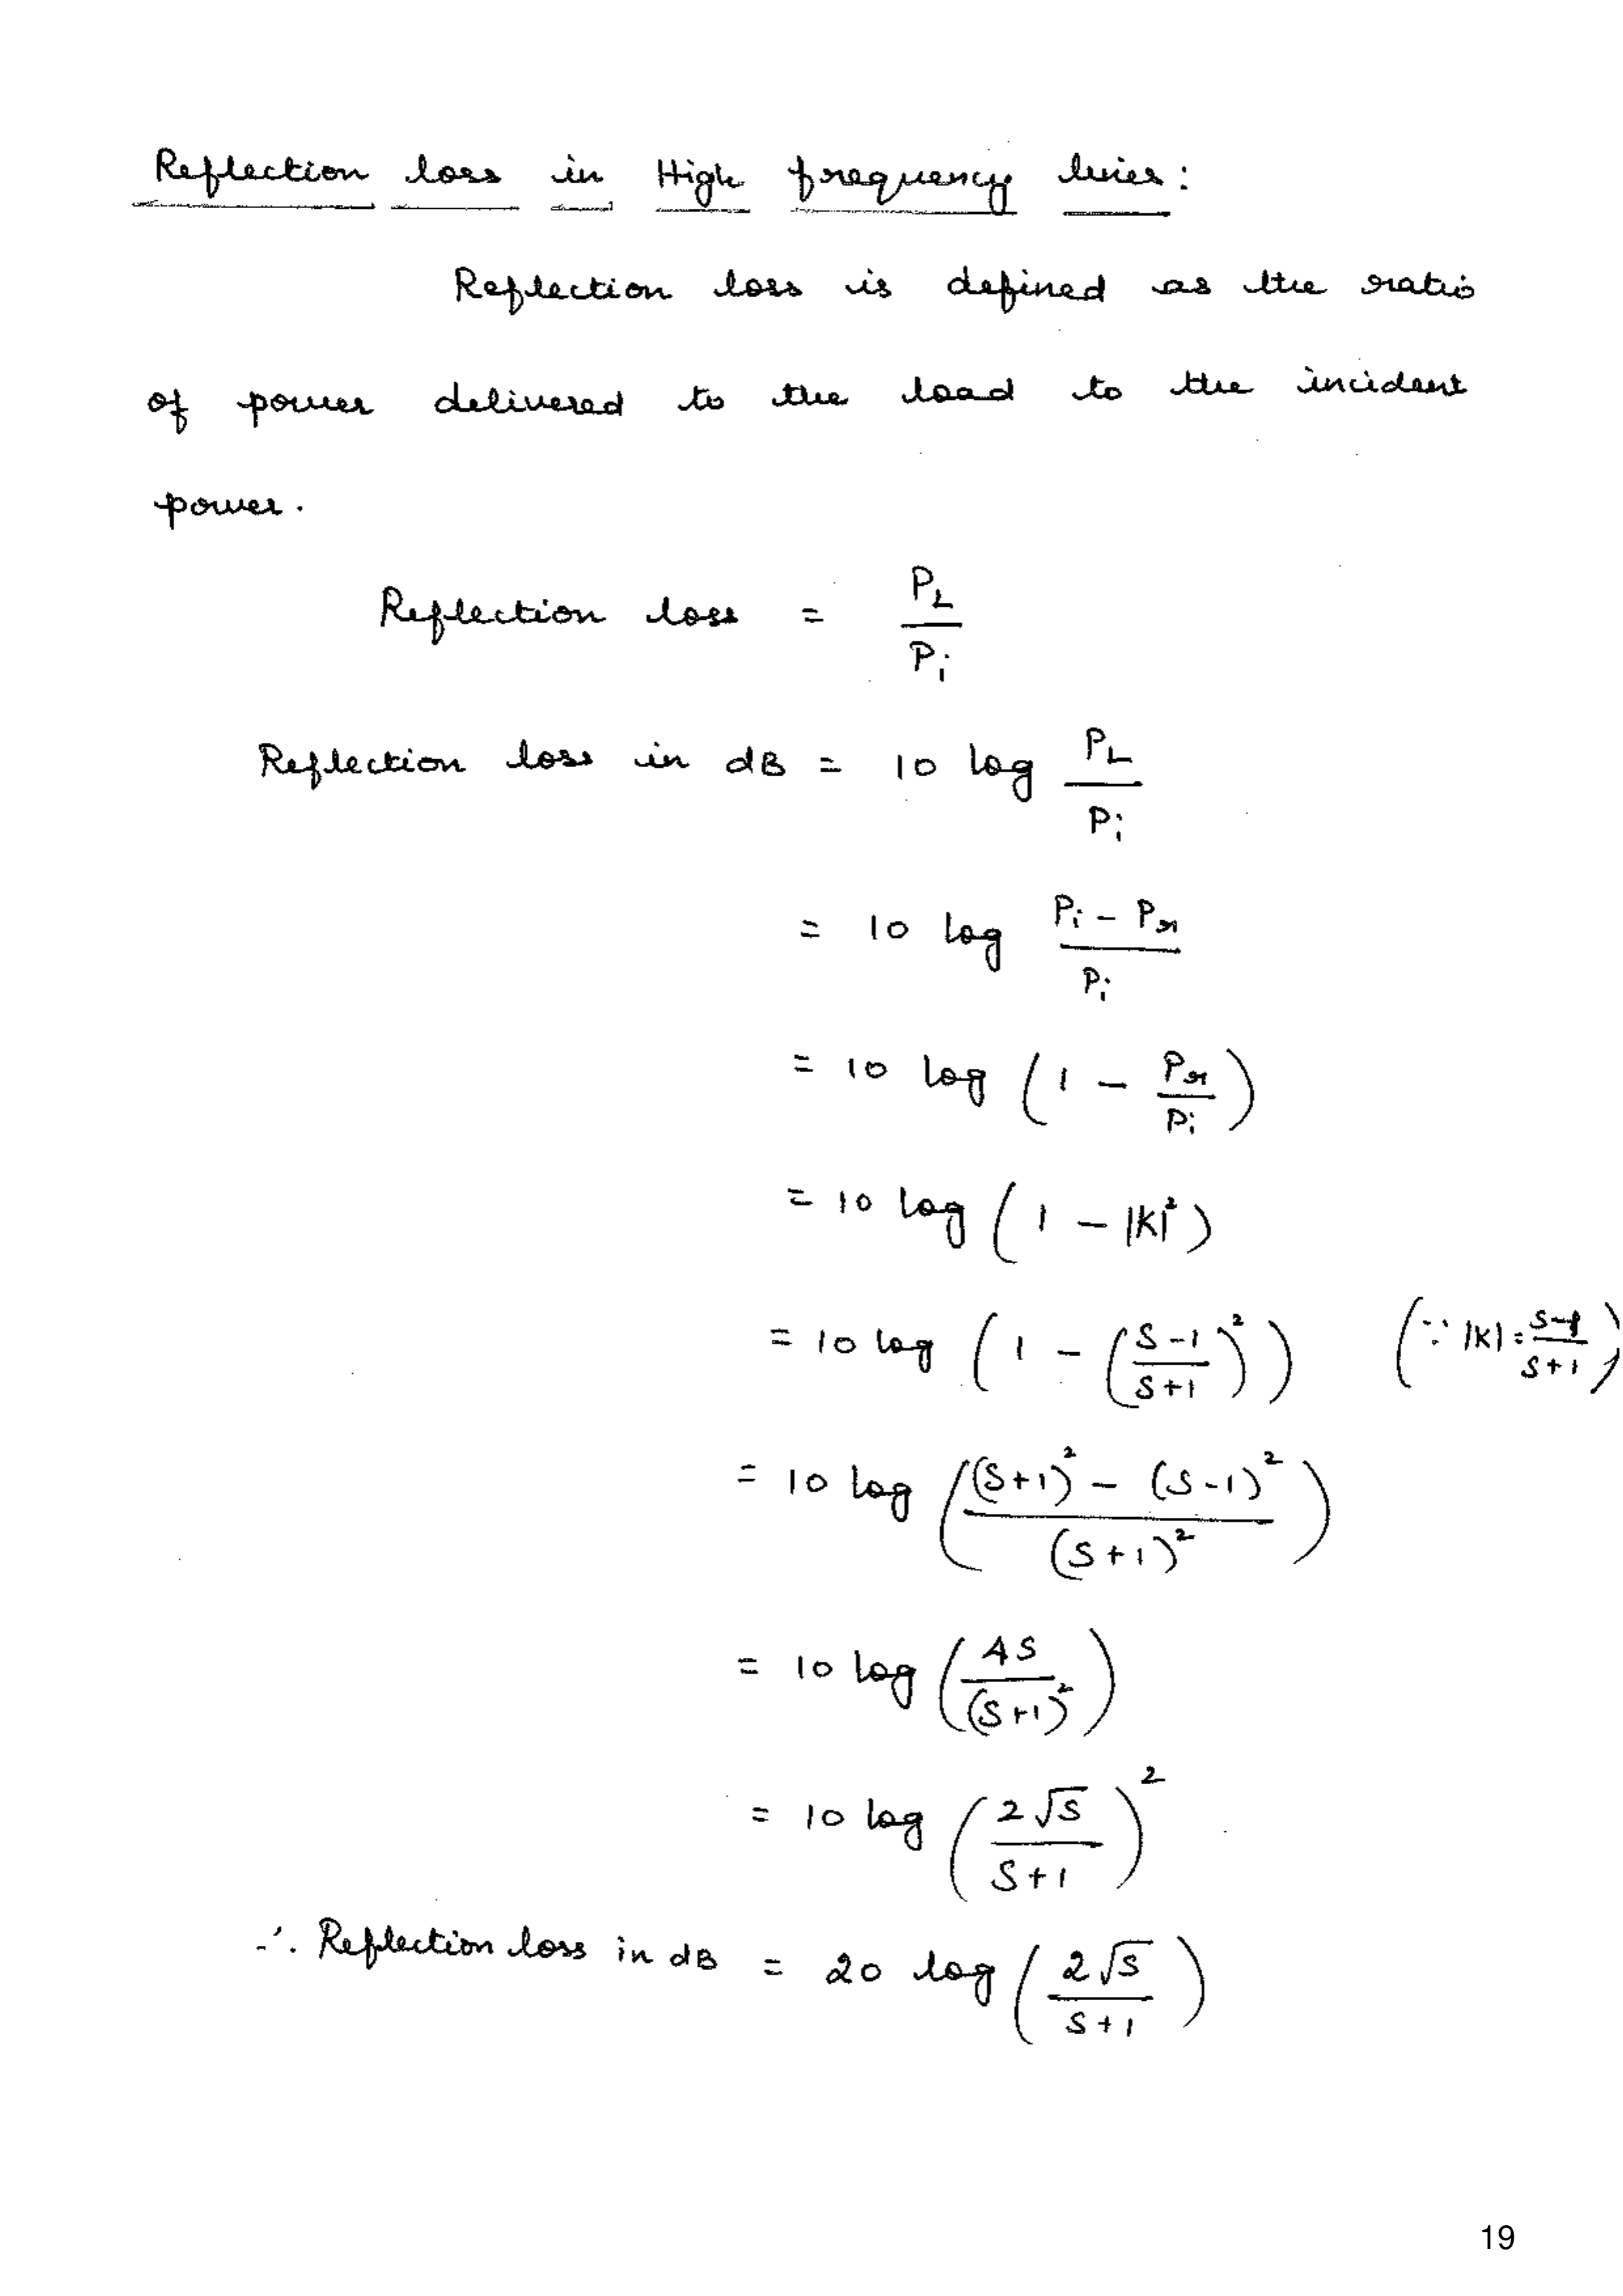 Reflection loss in High frequency lines:
Reflection loss is defined as the ratio
of power delivered to the load to the incident
power.
Reflection loss = P_L / P_i
Reflection loss in dB = 10 log P_L / P_i
= 10 log (P_i - P_r) / P_i
= 10 log (1 - P_r / P_i)
= 10 log (1 - |K|²)
= 10 log (1 - ((S-1) / (S+1))²) (∵ |K| = (S-1) / (S+1))
= 10 log (((S+1)² - (S-1)²) / (S+1)²)
= 10 log (4S / (S+1)²)
= 10 log (2√S / (S+1))²
∴ Reflection loss in dB = 20 log (2√S / (S+1))
19